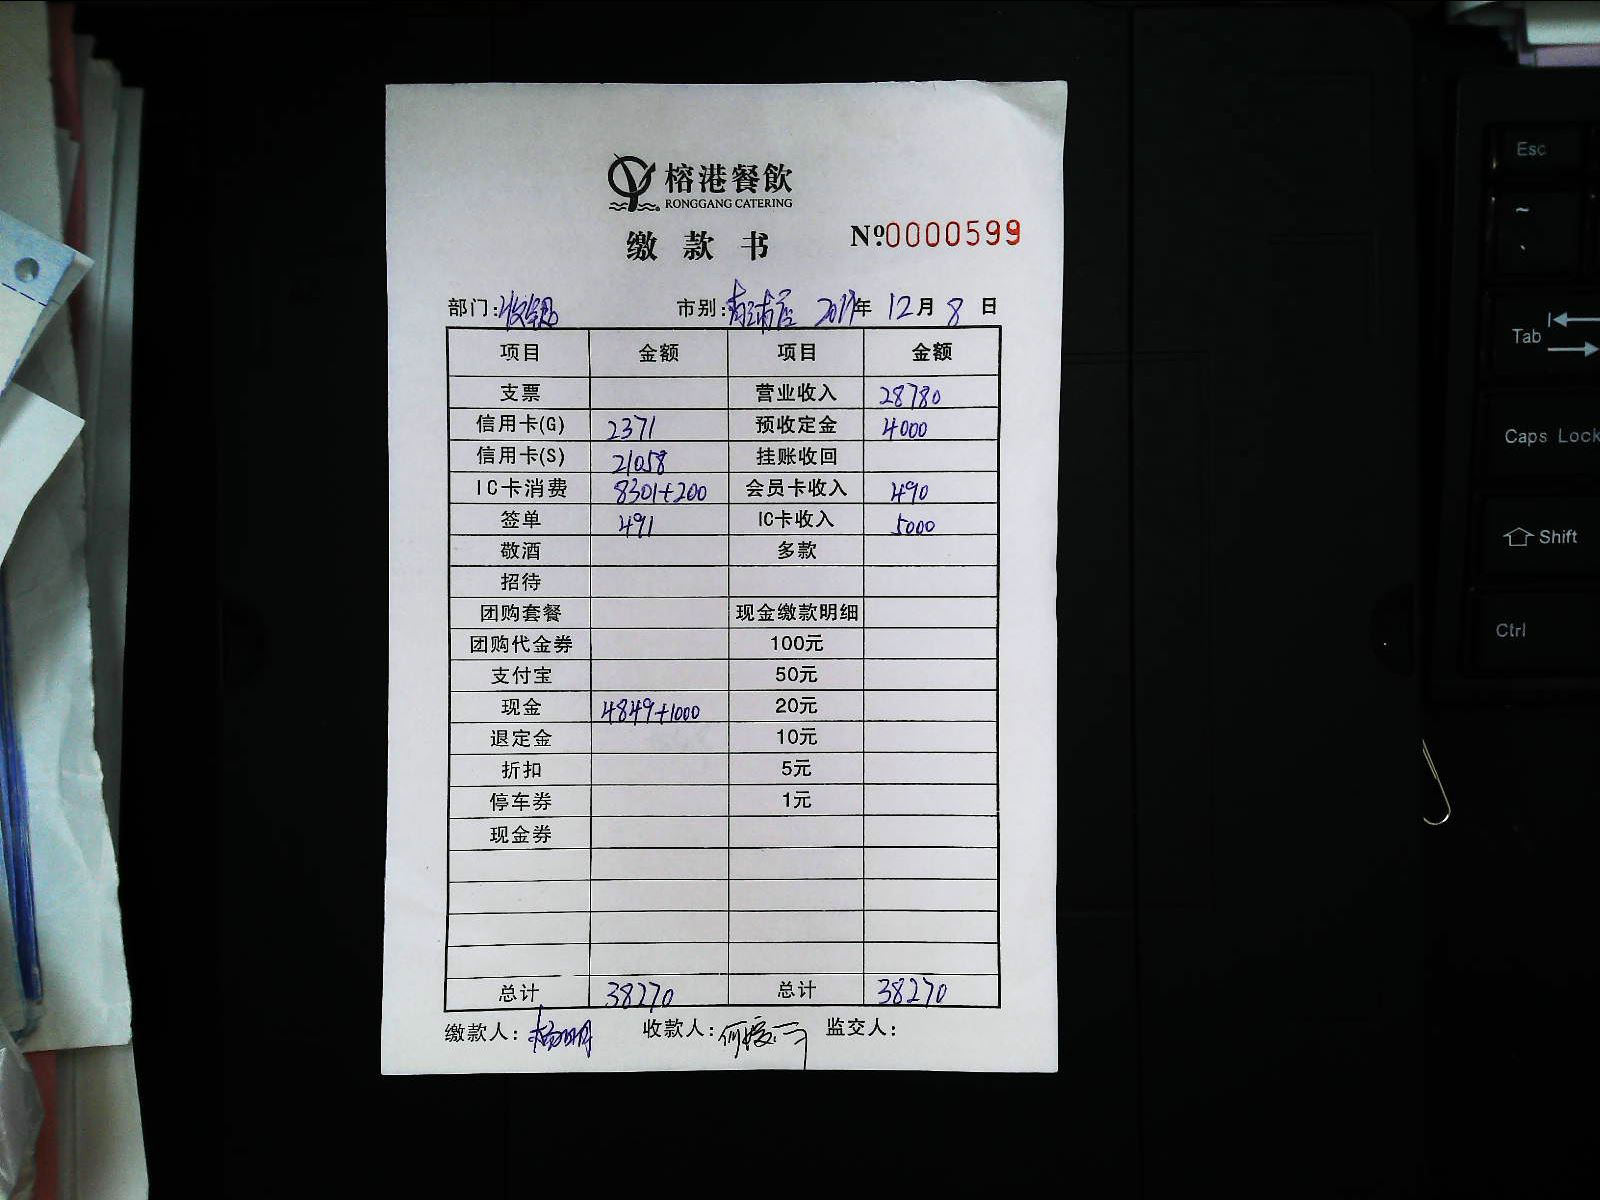 榕港餐飲
RONGGANG CATERING
缴款书 Nº0000599
部门:收银 市别: 年 12月8日
项目 金额 项目 金额
支票 营业收入 28780
信用卡(G) 2371 预收定金 4000
信用卡(S) 21058 挂账收回
IC卡消费 8301+200 会员卡收入 490
签单 491 IC卡收入 5000
敬酒 多款
招待
团购套餐 现金缴款明细
团购代金券 100元
支付宝 50元
现金 4849+1000 20元
退定金 10元
折扣 5元
停车券 1元
现金券
总计 38270 总计 38270
缴款人: 收款人: 监交人:
Esc
~
Tab
Caps Lock
Shift
Ctrl